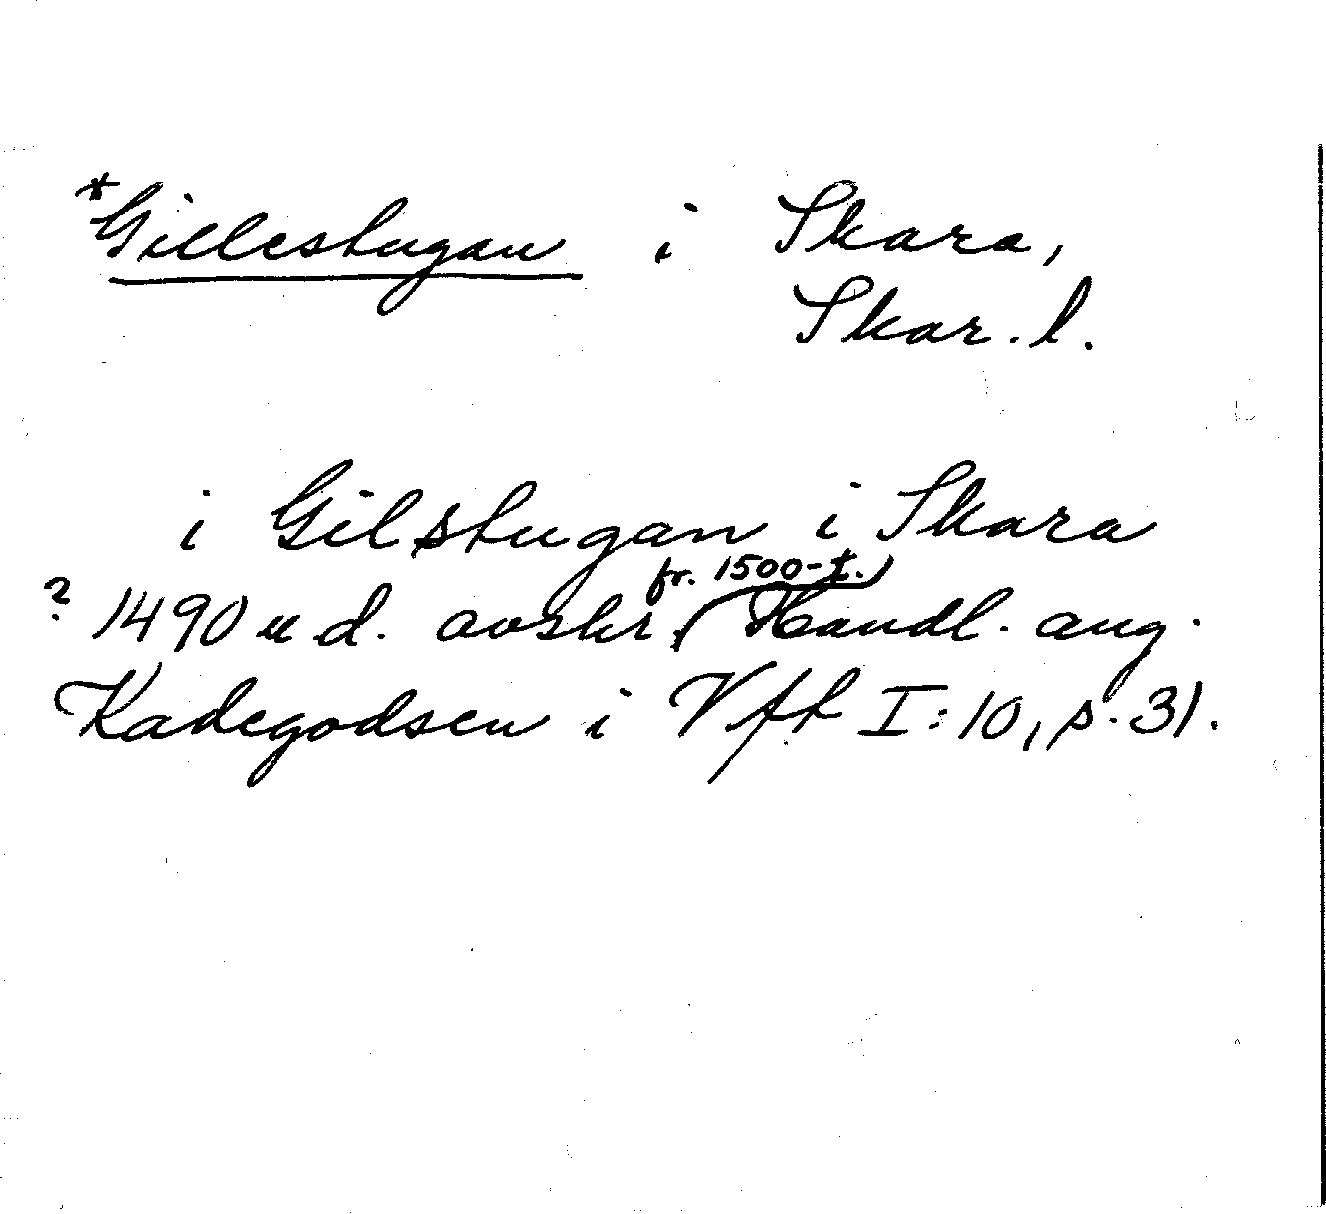 *Gillestugan i Skara,
Skar. l.
i Gilstugan i Skara
fr. 1500-t.
? 1490 u d. avskr. (Handl. ang.
Kadegodsen i Vft I:10, s. 31.